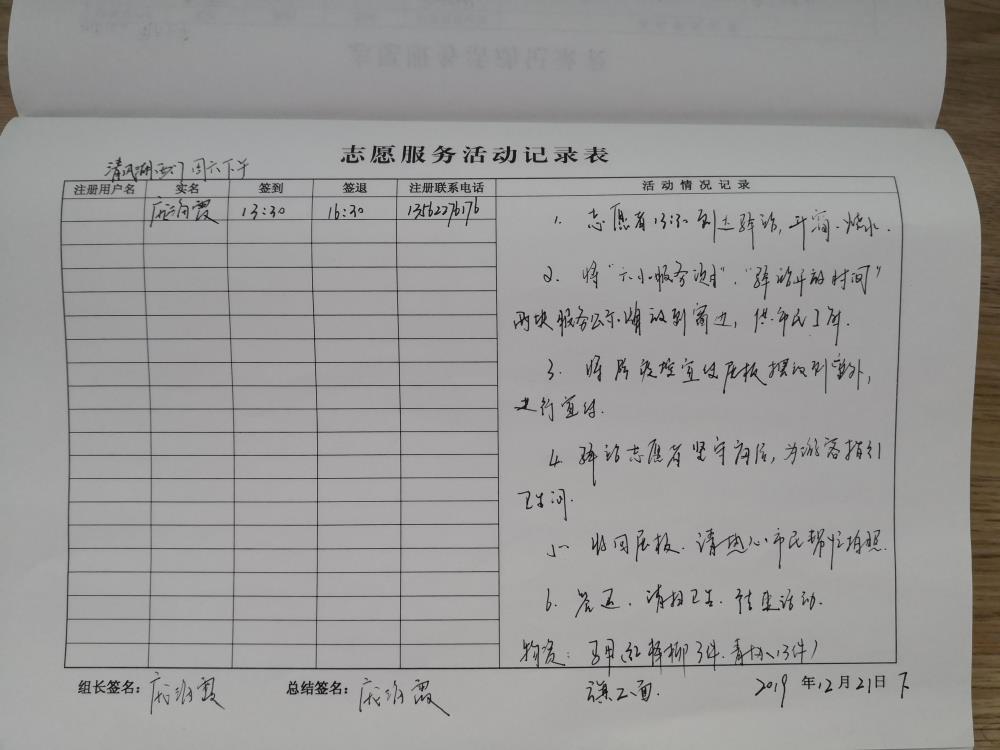 志愿服务活动记录表
清风湖西门 周六下午
注册用户名 实名 签到 签退 注册联系电话 活动情况记录
霞 13:30 16:30 13562276176
1. 志愿者13:30到达驿站,开窗、烧水.
2. 将“六小服务项目”、“驿站开放时间”
两块服务公示牌放到窗边,供市民了解.
3. 将 宣传展板摆放到室外,
进行宣传.
4. 驿站志愿者坚守岗位,为游客指引
卫生间.
5. 收回展板.请热心市民帮忙拍照.
6. 签退、清扫卫生.结束活动.
物资: 马甲(红 3件.青 13件)
组长签名: 霞 总结签名: 霞 2019 年 12 月 21 日 下